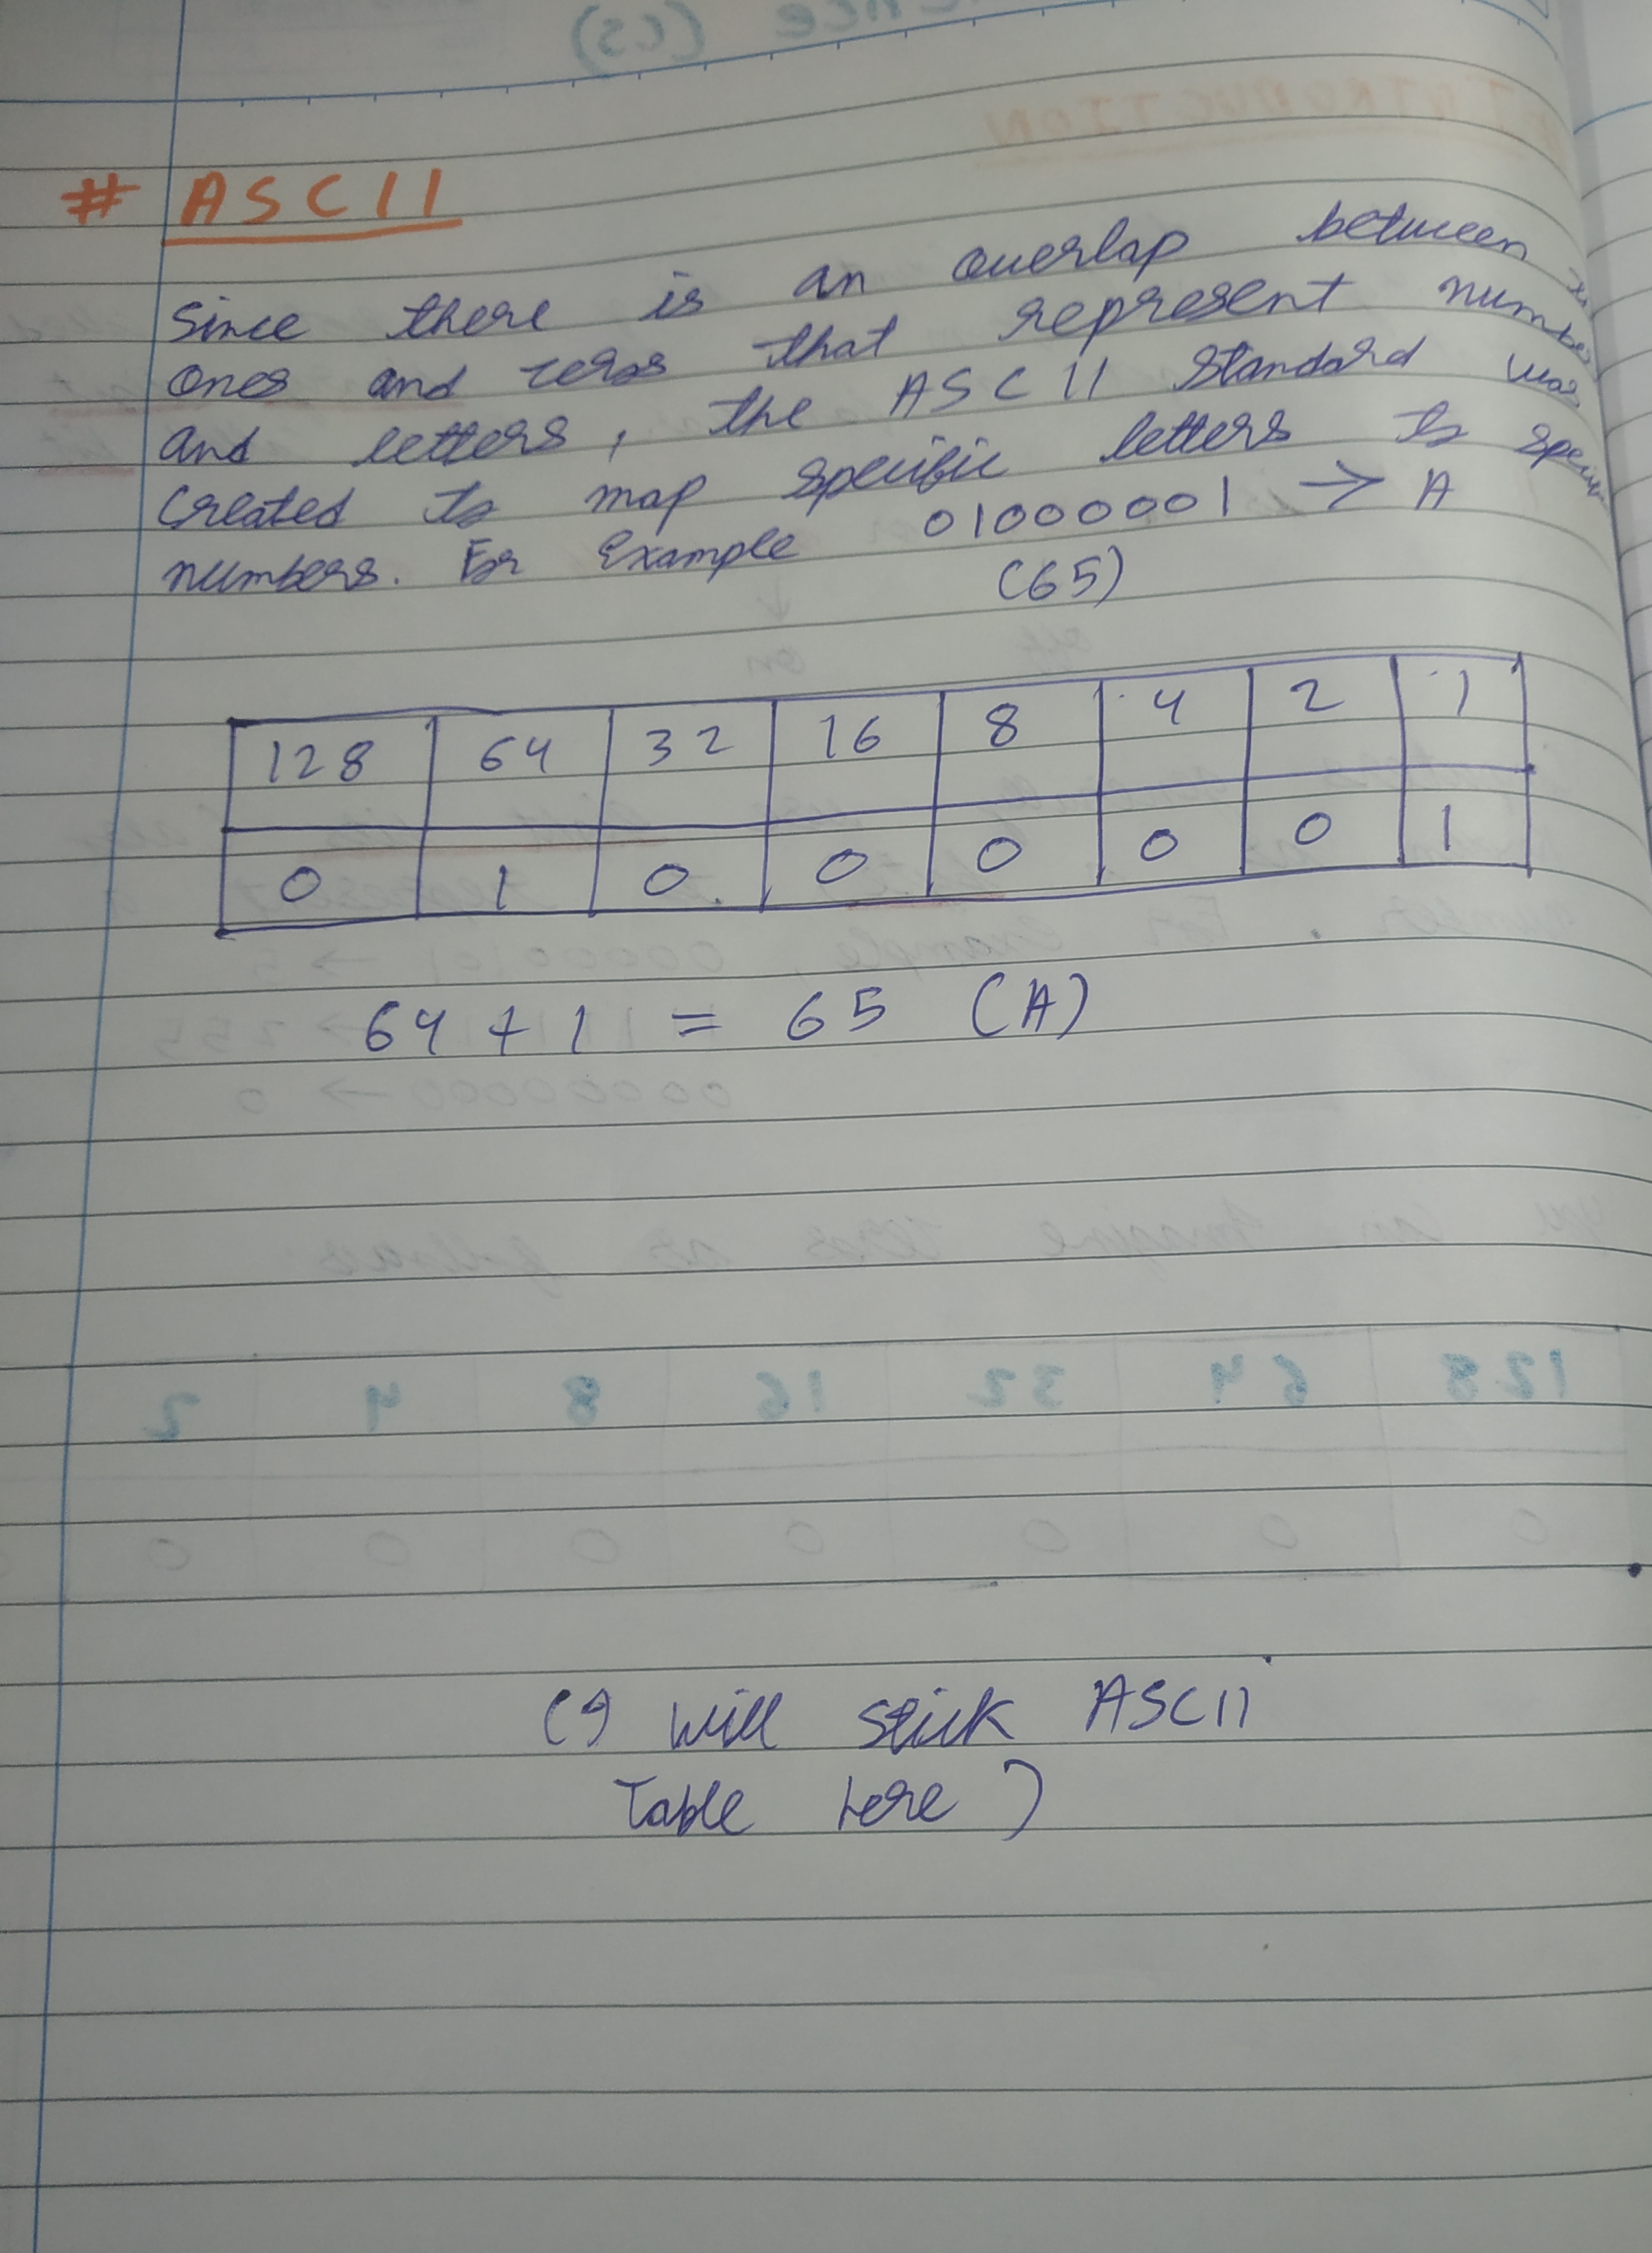 # ASCII
Since there is an overlap between
ones and zeros that represent number
and letters, the ASCII standard was
created to map specific letters to
numbers. For Example 01000001 → A
(65)
128 64 32 16 8 4 2 1
0 1 0 0 0 0 0 1
64 + 1 = 65 (A)
(I will stick ASCII
Table here)